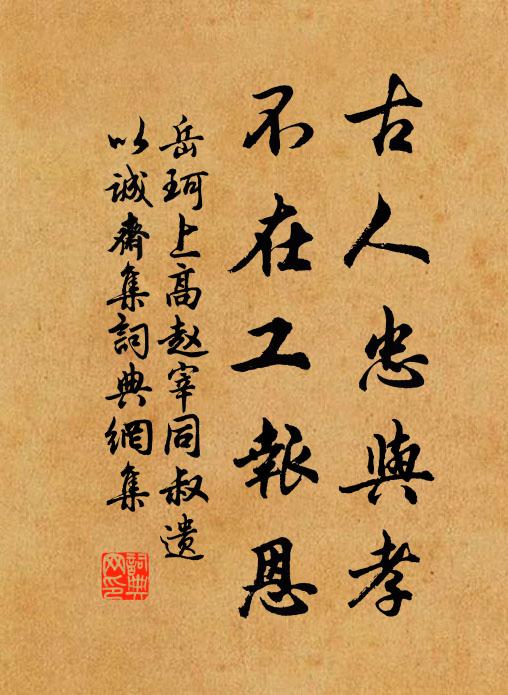 古人忠與孝
不在工報恩
岳珂上高赵宰同叔遗
以誠齋集詞典網集
詞典
网印